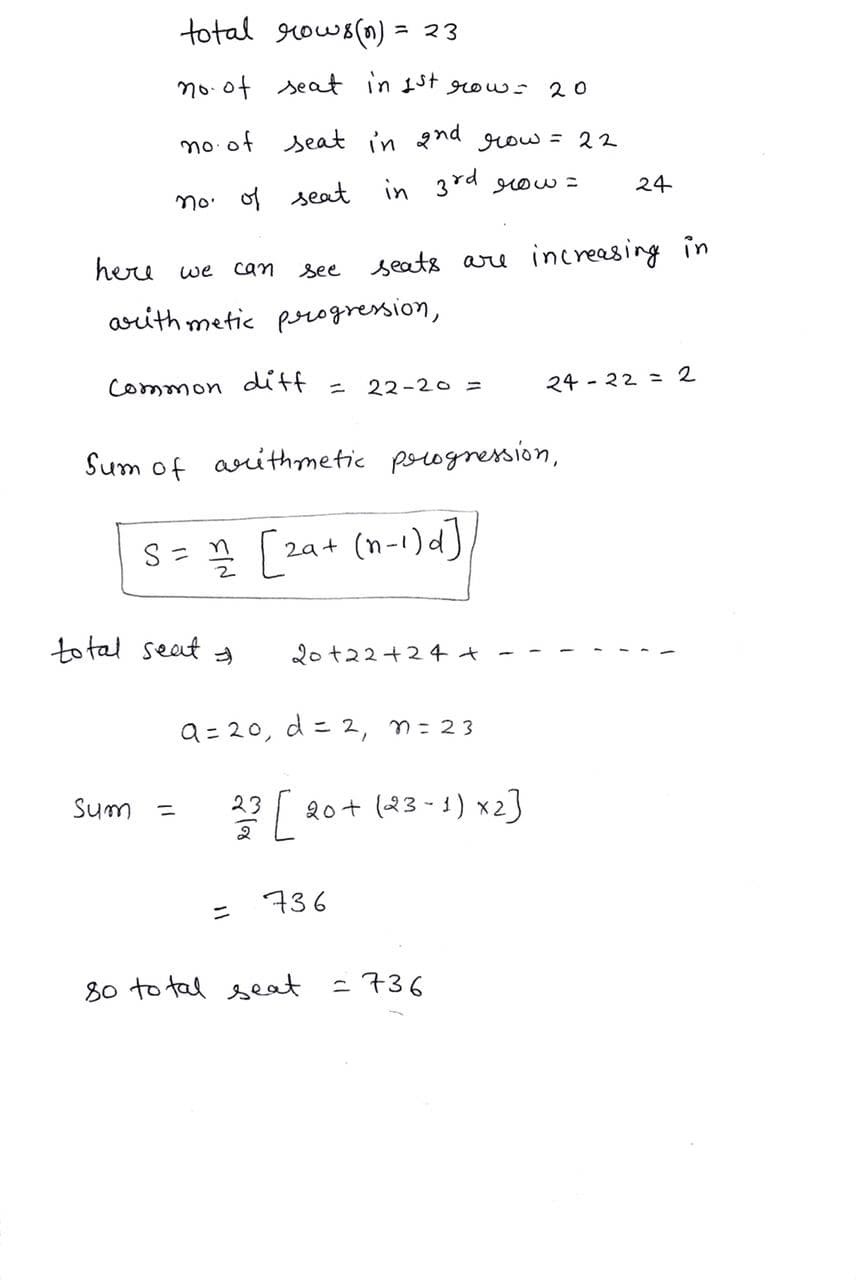 total rows(n) = 23
no. of seat in 1st row = 20
no. of seat in 2nd row = 22
no. of seat in 3rd row = 24
here we can see seats are increasing in
arithmetic progression,
Common diff = 22-20 = 24-22 = 2
Sum of arithmetic progression,
S = n/2 [2a + (n-1)d]
total seat ⇒ 20+22+24+ - - - - - - -
a = 20, d = 2, n = 23
Sum = 23/2 [20 + (23-1) ×2]
= 736
so total seat = 736